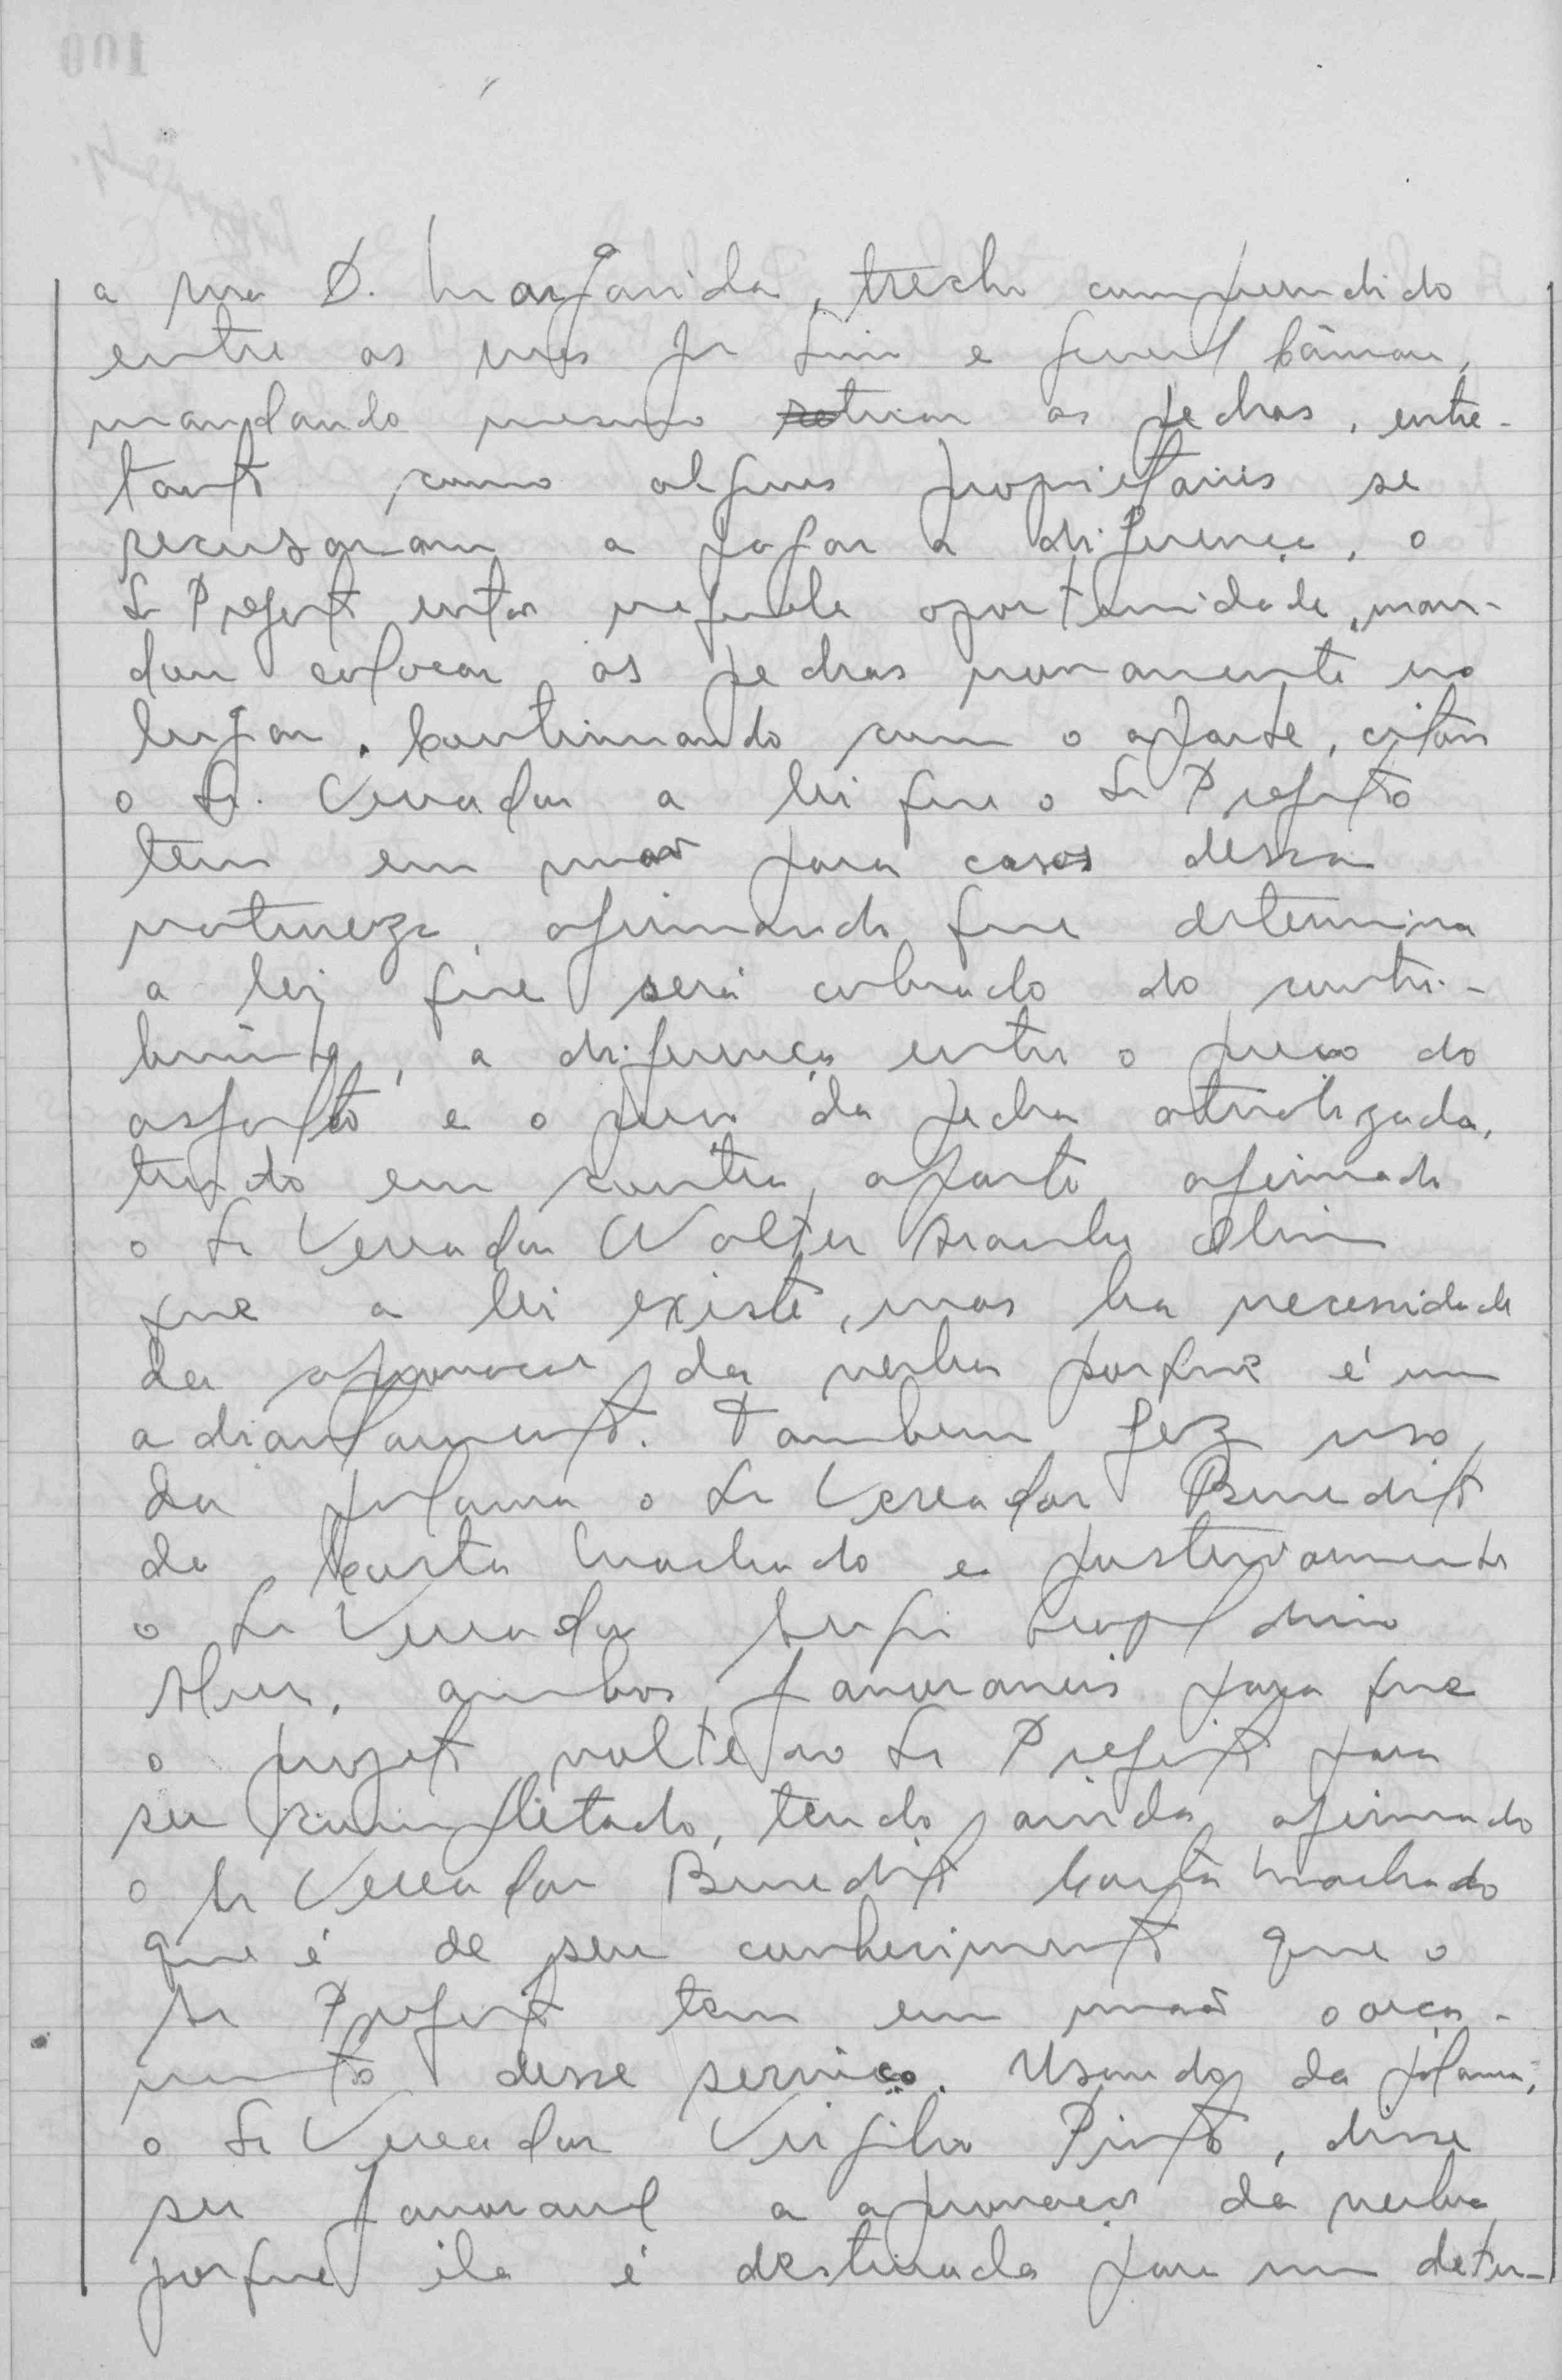 a rua D. Margarida, trecho compreendido
entre as ruas Jr e General Câmara,
mandando mesmo retirar as pedras, entre-
tanto como alguns proprietarios se
recusaram a pagar a diferença, o
Sr Prefeito então naquela oportunidade, man-
dou colocar as pedras novamente no
lugar. Continuando com o aparte, citou
o Sr. Vereador a lei que o Sr Prefeito
tem em mão para casos dessa
natureza, afirmando que determina
a lei que será cobrado do contri-
buinte, a diferença entre o preço do
asfalto e o preço da pedra atualizada,
tendo em contra aparte afirmado
o Sr Vereador Walter Aranha
que a lei existe, mas ha necessidade
da aprovação da verba porque é um
adiantamento. Tambem fez uso
da palavra o Sr Vereador Benedito
da Costa Machado e posteriormente
o Sr Vereador
Alves, ambos favoraveis para que
o projeto volte ao Sr Prefeito para
ser completado, tendo ainda afirmado
o Sr Vereador Benedito Costa Machado
que é de seu conhecimento que o
Sr Prefeito tem em mão o orça-
mento desse serviço. Usando da palavra,
o Sr Vereador Virgilio Pinto, disse
ser favoravel a aprovação da verba
porque ela é destinada para um deter-
100